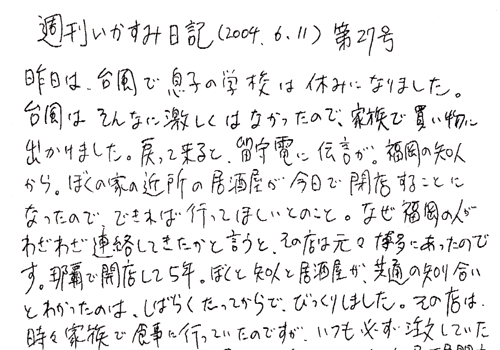 週刊いかすみ日記(2004.6.11) 第27号
昨日は、台風で息子の学校は休みになりました。
台風はそんなに激しくはなかったので、家族で買い物に
出かけました。戻って来ると、留守電に伝言が。福岡の知人
から。ぼくの家の近所の居酒屋が今日で閉店することに
なったので、できれば行ってほしいとのこと。なぜ福岡の人が
わざわざ連絡してきたかと言うと、その店は元々博多にあったので
す。那覇で開店して5年。ぼくと知人と居酒屋が、共通の知り合い
とわかったのは、しばらくたってからで、びっくりしました。その店は、
時々家族で食事に行っていたのですが、いつも必ず注文していた